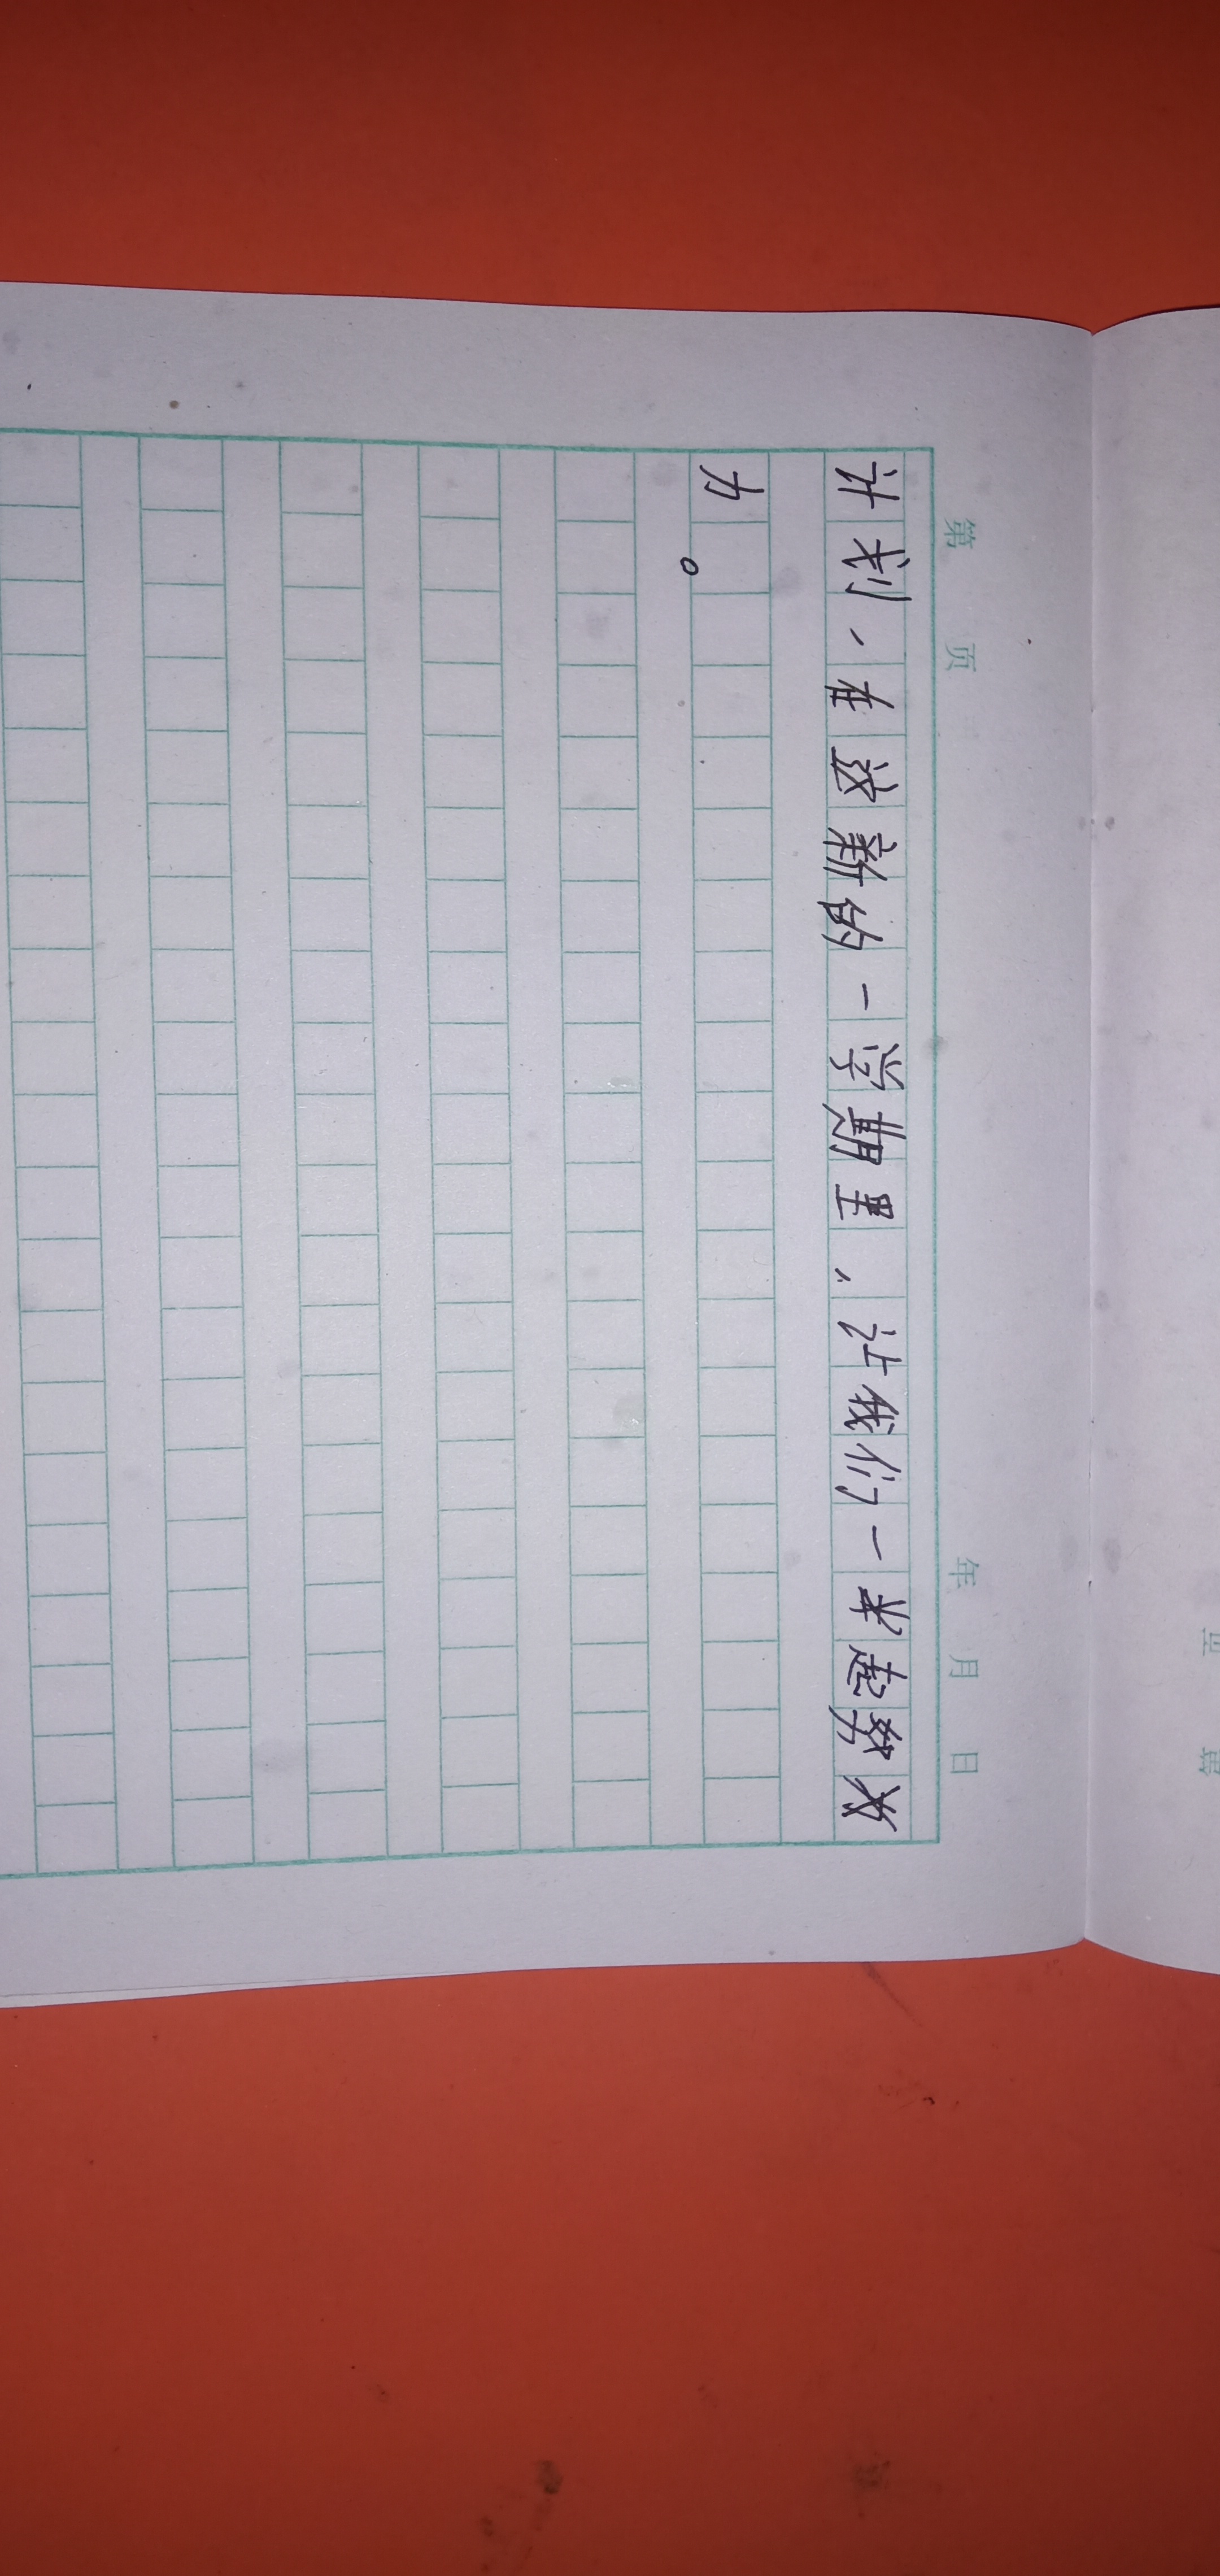 第 页 年 月 日
计划，在这新的一学期里，让我们一起努
力。